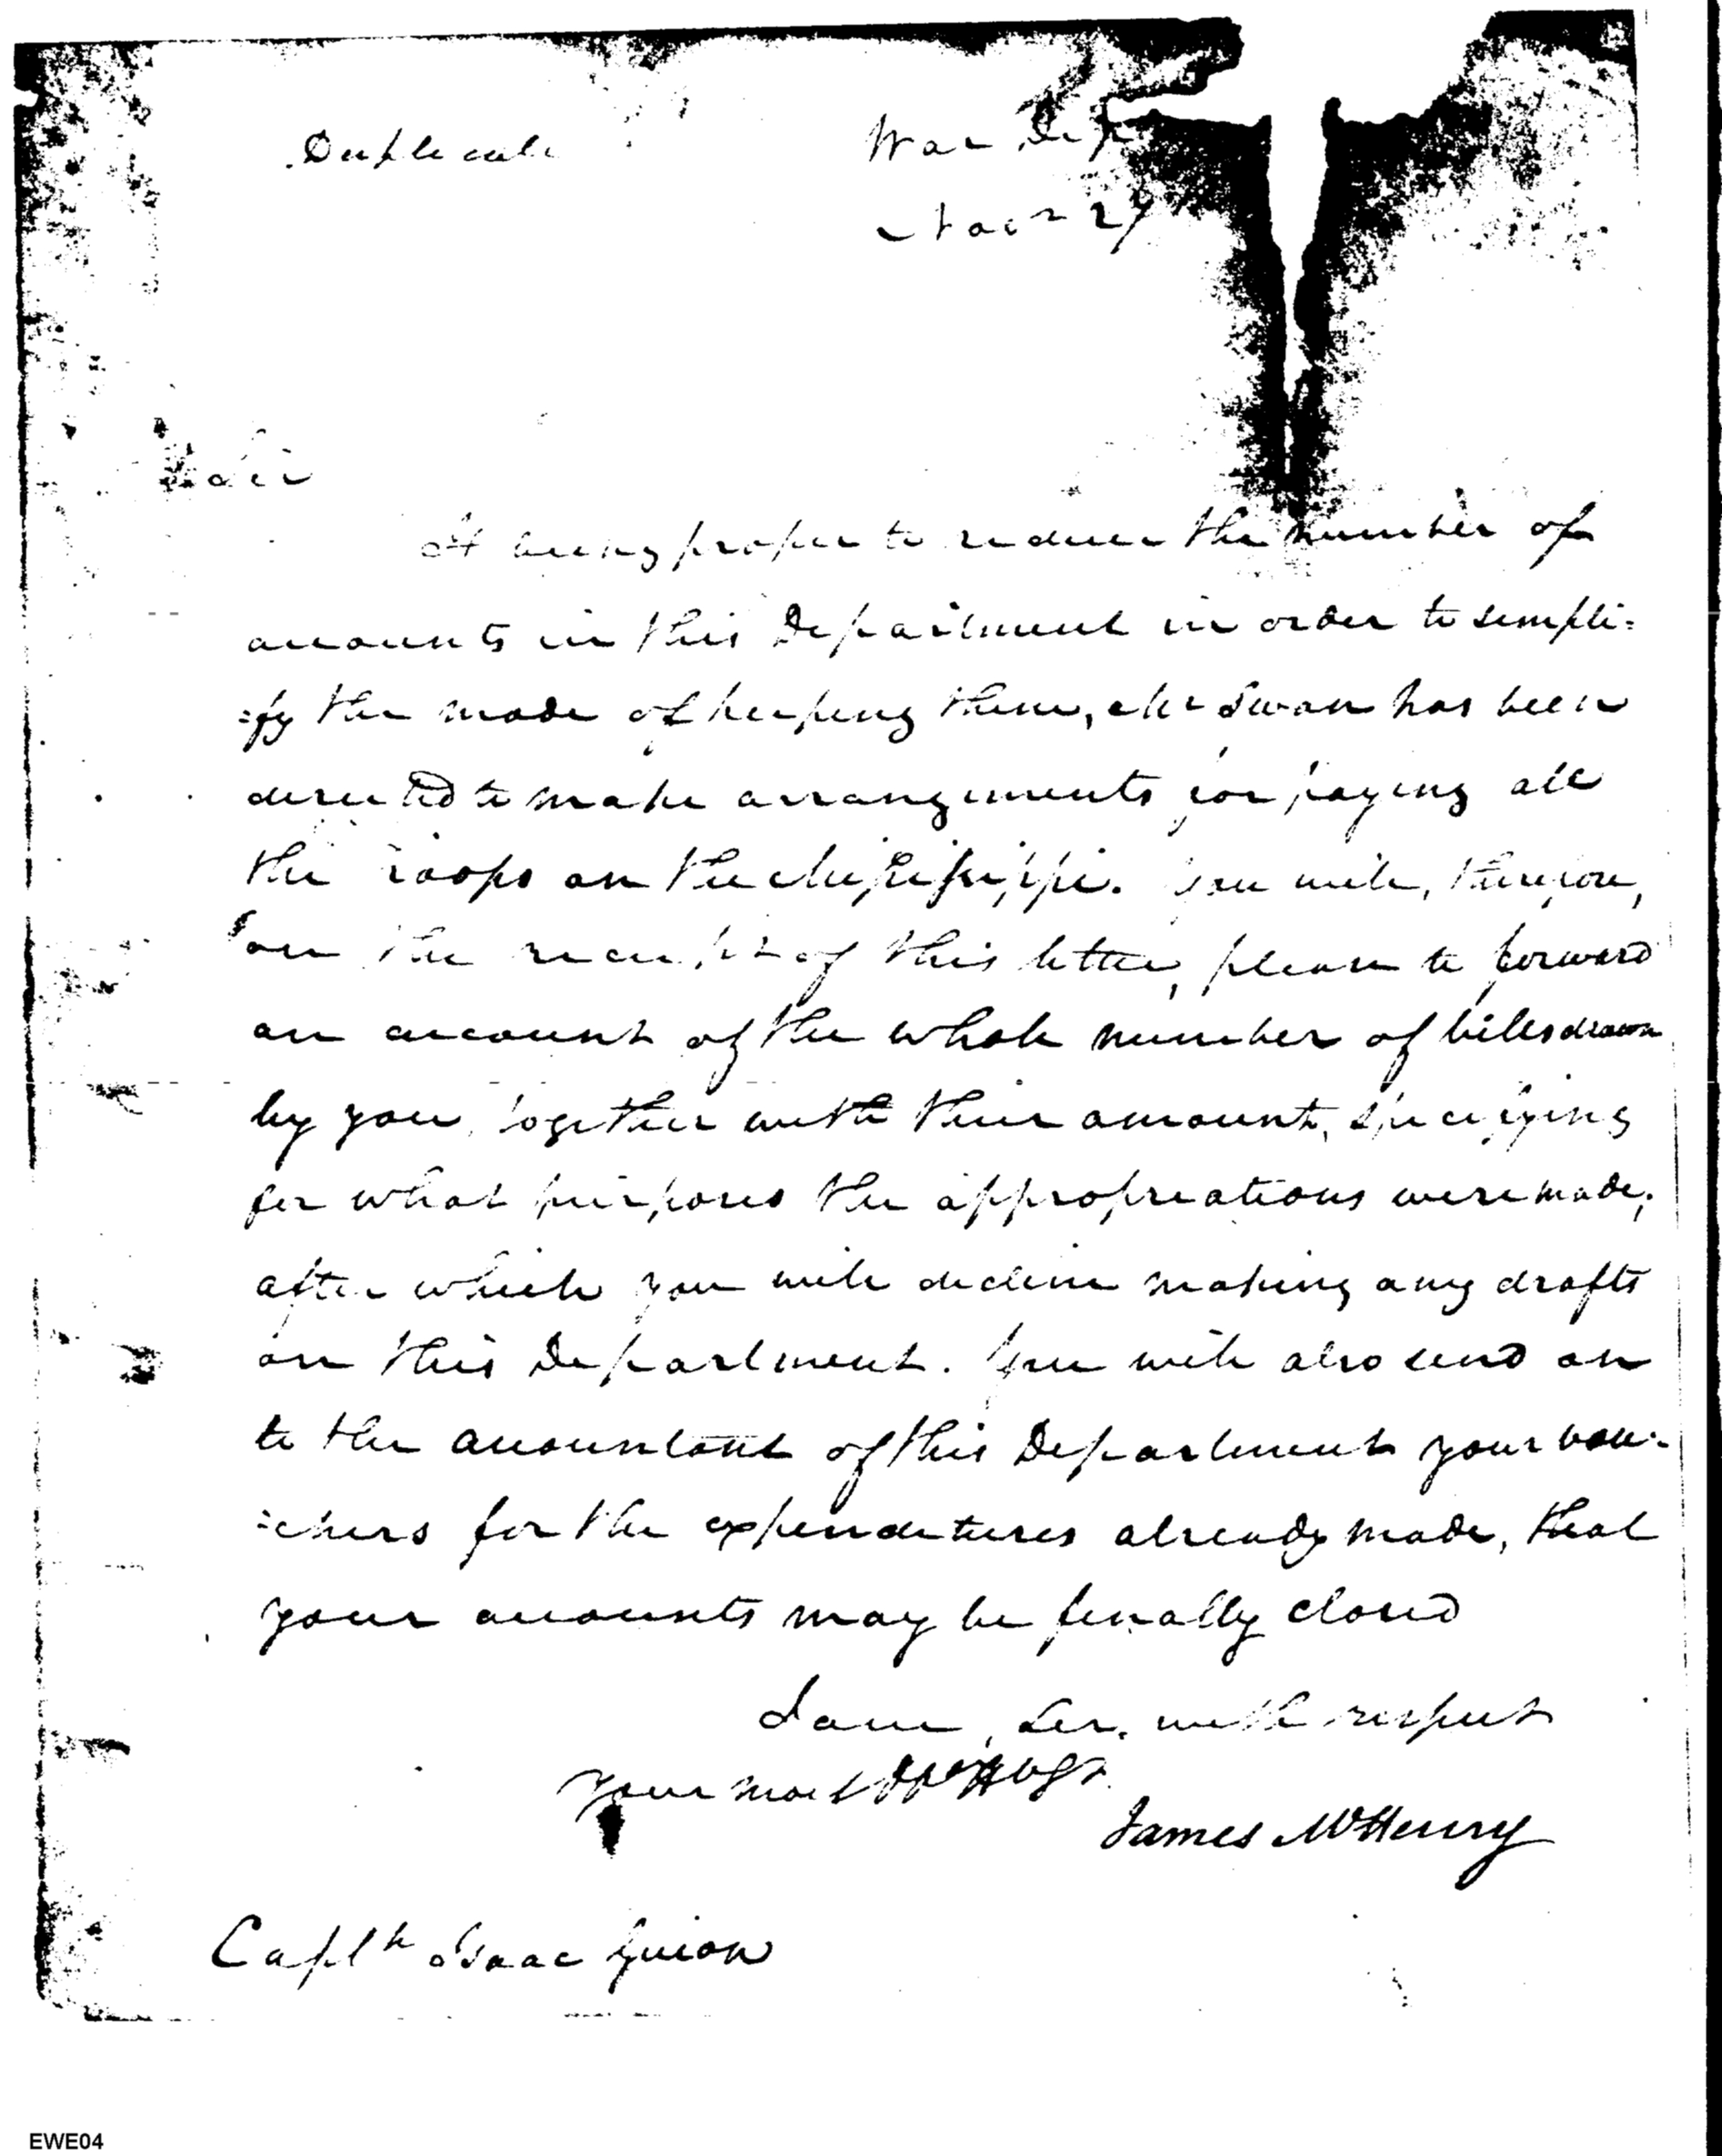 Duplicate
War Dep
Novr 27
Sir
It being proper to reduce the number of
accounts in this Department in order to simpli=
=fy the mode of keeping them, Mr Swan has been
directed to make arrangements for paying all
the troops on the Mississippi. You will, therefore,
on the receipt of this letter, please to forward
an account of the whole number of bills drawn
by you, together with their amount, specifying
for what purposes the appropriations were made;
after which you will decline making any drafts
on this Department. You will also send on
to the accountant of this Department your vou=
=chers for the expenditures already made, that
your accounts may be finally closed
I am, Sir, with respect
Your most Obt
James McHenry
Captn Isaac Guion
EWE04